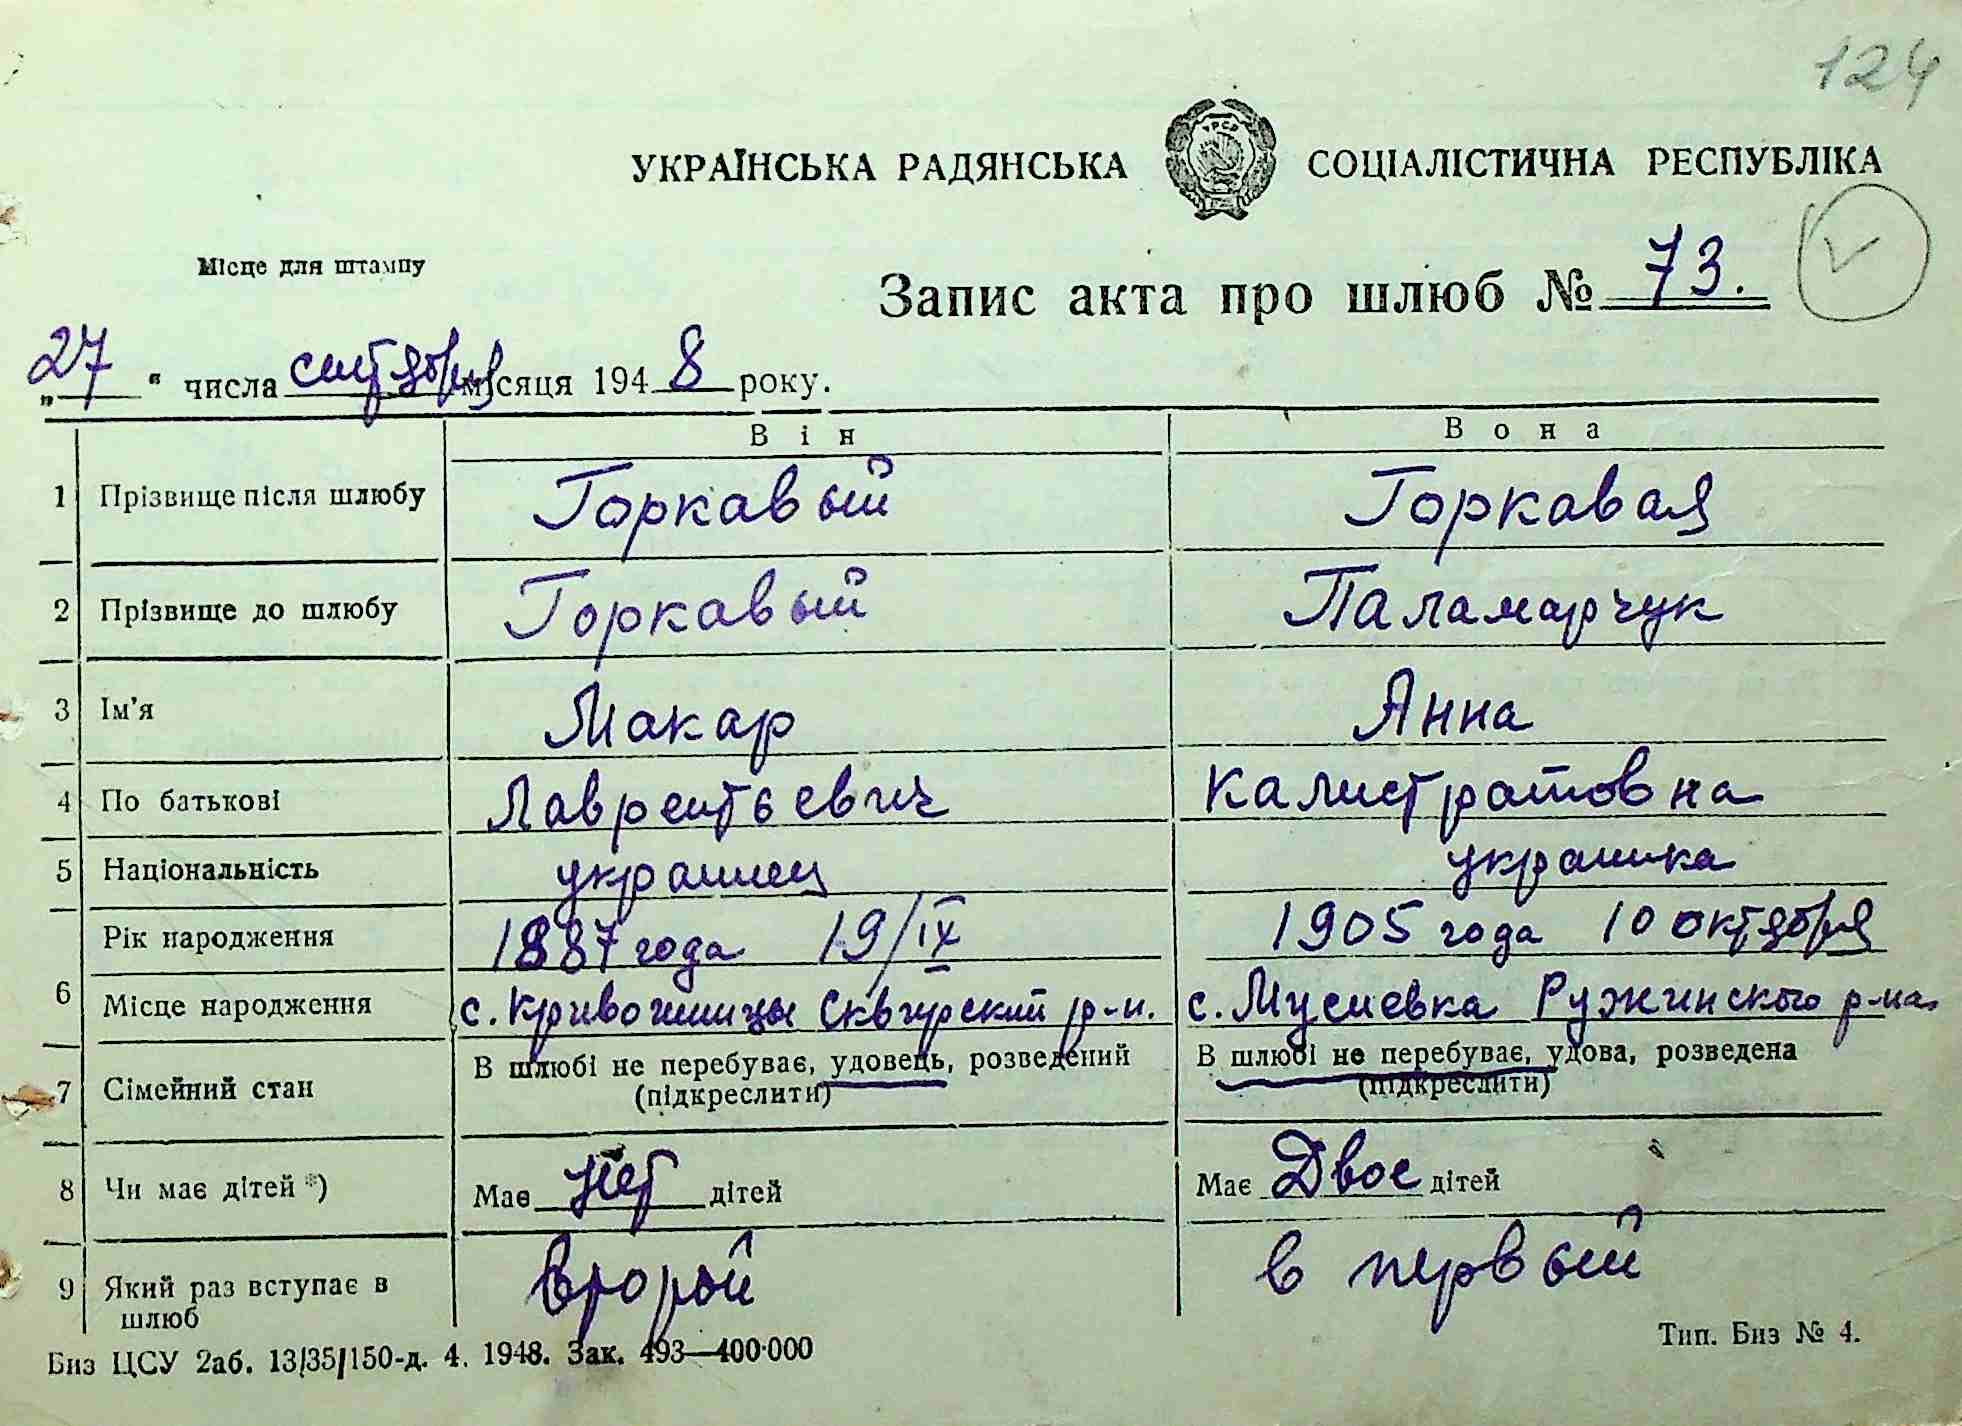 124
УКРАЇНСЬКА РАДЯНСЬКА СОЦІАЛІСТИЧНА РЕСПУБЛІКА
УРСР
Місце для штампу
Запис акта про шлюб № 73.
„27" числа сентября місяця 1948 року.
Він Вона
1 Прізвище після шлюбу Горкавый Горкавая
2 Прізвище до шлюбу Горкавый Паламарчук
3 Ім'я Макар Анна
4 По батькові Лаврентьевич Калистратовна
5 Національність украинец украинка
Рік народження 1887 года 19/IX 1905 года 10 октября
6 Місце народження с. Кривошиинцы Сквирский р-н. с. Мусиевка Ружинского р-на
7 Сімейний стан В шлюбі не перебуває, удовець, розведений В шлюбі не перебуває, удова, розведена
(підкреслити) (підкреслити)
8 Чи має дітей *) Має нет дітей Має Двое дітей
9 Який раз вступає в шлюб второй в первый
Биз ЦСУ 2аб. 13/35/150-д. 4. 1948. Зак. 493—400·000 Тип. Биз № 4.